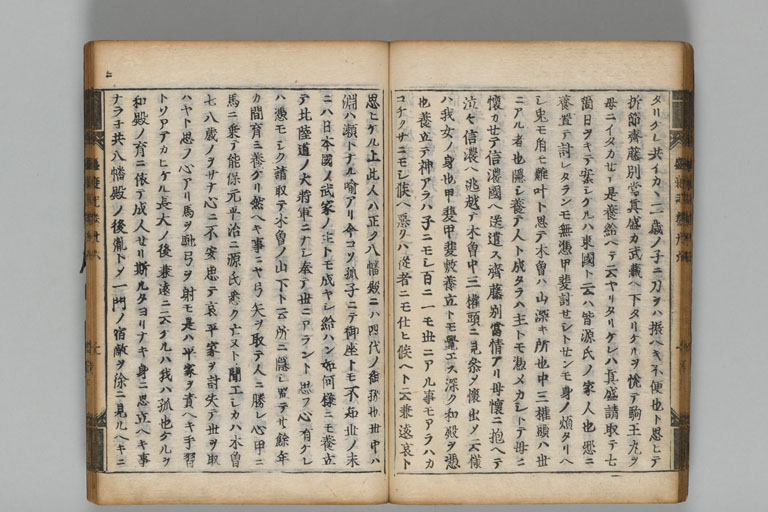 タリケレ共イカヽ二歳ノ子ニ刀ヲハ振ヘキ不便也ト思ヒテ
折節齊藤別當真盛カ武蔵ヘ下タリケルヲ悦テ駒王丸ヲ
母ニイタカセテ是養給ヘトテ云ヤリタリケレハ真盛請取テ七
箇日ヲキテ案シケルハ東國ト云ハ皆源氏ノ家人也慿ニ
養置テ討レタランモ無慿甲斐討セシトセンモ身ノ煩タリヘ
シ兎モ角モ難叶ト思テ木曽ハ山深キ所也中三權頭ハ世
ニアル者也隠シ養テ人ト成タラハ主トモ慿メカシトテ母ニ
懐カセテ信濃國ヘ送遣ス齊藤別當情アリ母懐ニ抱ヘテ
泣々信濃ヘ逃越テ木曽中三權頭ニ見参メ懐出ノ云様
ハ我女ノ身也甲斐甲斐敷養立トモ覺エス深ク和殿ヲ慿
也養立テ神アラハ子ニモシ百ニ一モ世ニアル事モアラハカ
コチクサニモシ候ヘ悪クハ從者ニモ仕ヒ候ヘト云兼遠哀ト
思ヒケル上此人ハ正ク八幡殿ニハ四代ノ御孫也世中ハ
淵ハ瀬トナル喩アリ今コソ孤子ニテ御座トモ不知世ノ末
ニハ日本國ノ武家ノ主トモ成ヤシ給ハン如何様ニモ養立
テ北陸道ノ大將軍ニナシ奉テ世ニアラント思フ心有ケレ
ハ慿モシク請取テ木曽ノ山下ト云所ニ隠シ置テ廿餘年
カ間育ミ養ケリ然ヘキ事ニヤ弓矢ヲ取テ人ニ勝レ心甲ニ
馬ニ乗テ能保元平治ニ源氏悉ク亡ヌト聞エシカハ木曽
七八歳ノヲサナ心ニ不安思テ哀平家ヲ討失テ世ヲ取
ハヤト思フ心アリ馬ヲ馳弓ヲ射モ是ハ平家ヲ責ヘキ手習
トソアテカヒケル長大ノ後兼遠ニ云ケルハ我ハ孤也ケルヲ
和殿ノ育ニ依テ成人セリ斯ルタヨリナキ身ニ思立ヘキ事
ナラ子共八幡殿ノ後胤トメ一門ノ宿敵ヲ徐ニ見ルヘキニ